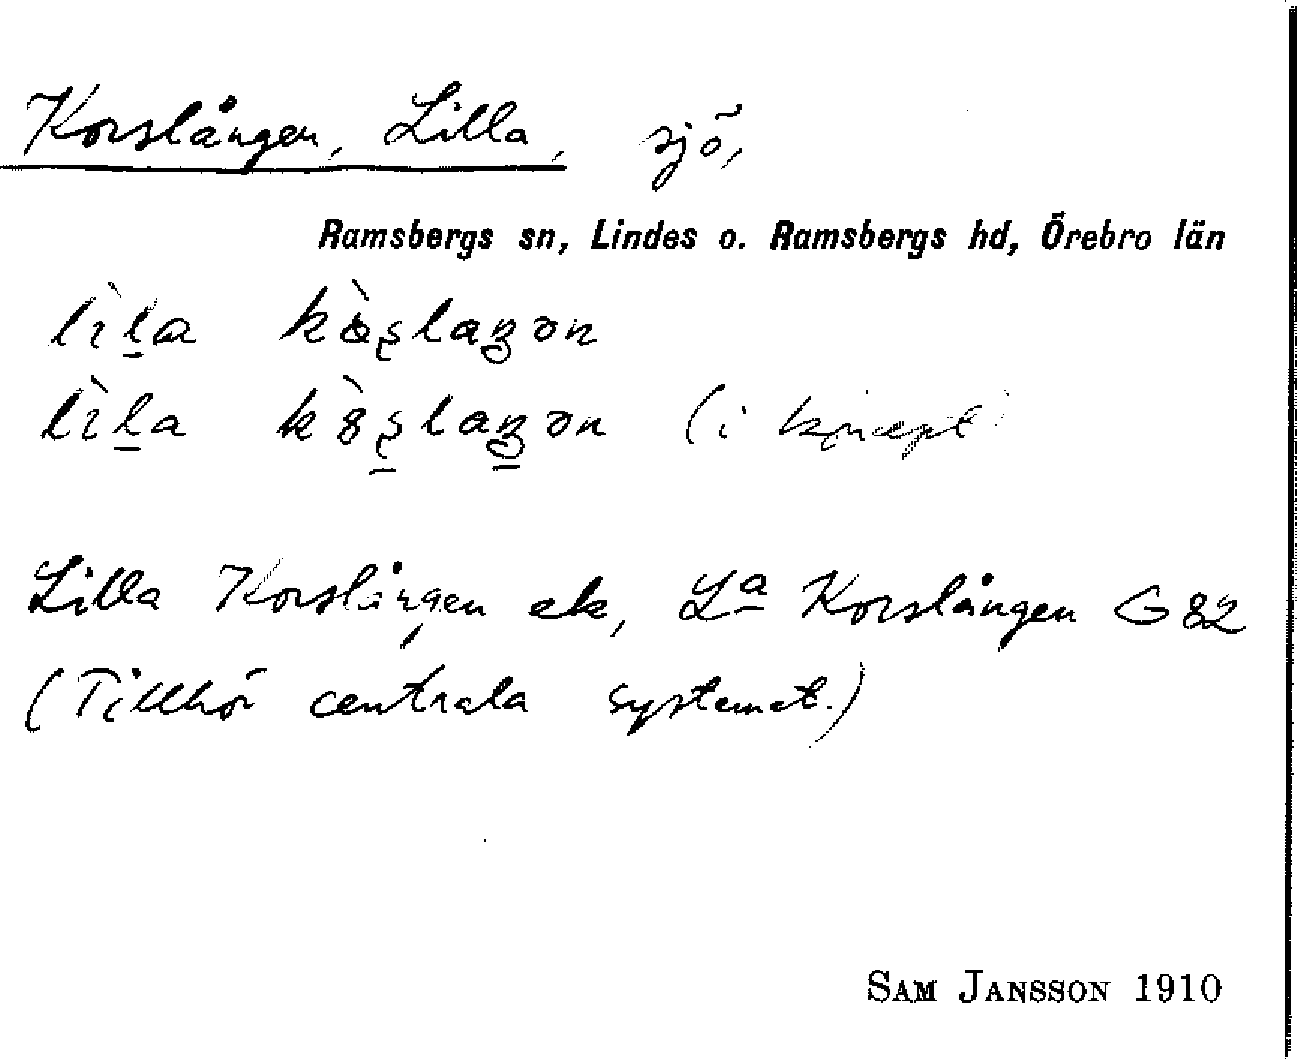 Korslången, Lilla, sjö,
Ramsbergs sn, Lindes o. Ramsbergs hd, Örebro län
lìl̠a kòʂlaŋən
lìl̠a kòʂ̠laŋ̠ən (i koncept)
Lilla Korslången ek, L<u>a</u> Korslången G 82
(Tillhör centrala systemet.)
SAM JANSSON 1910